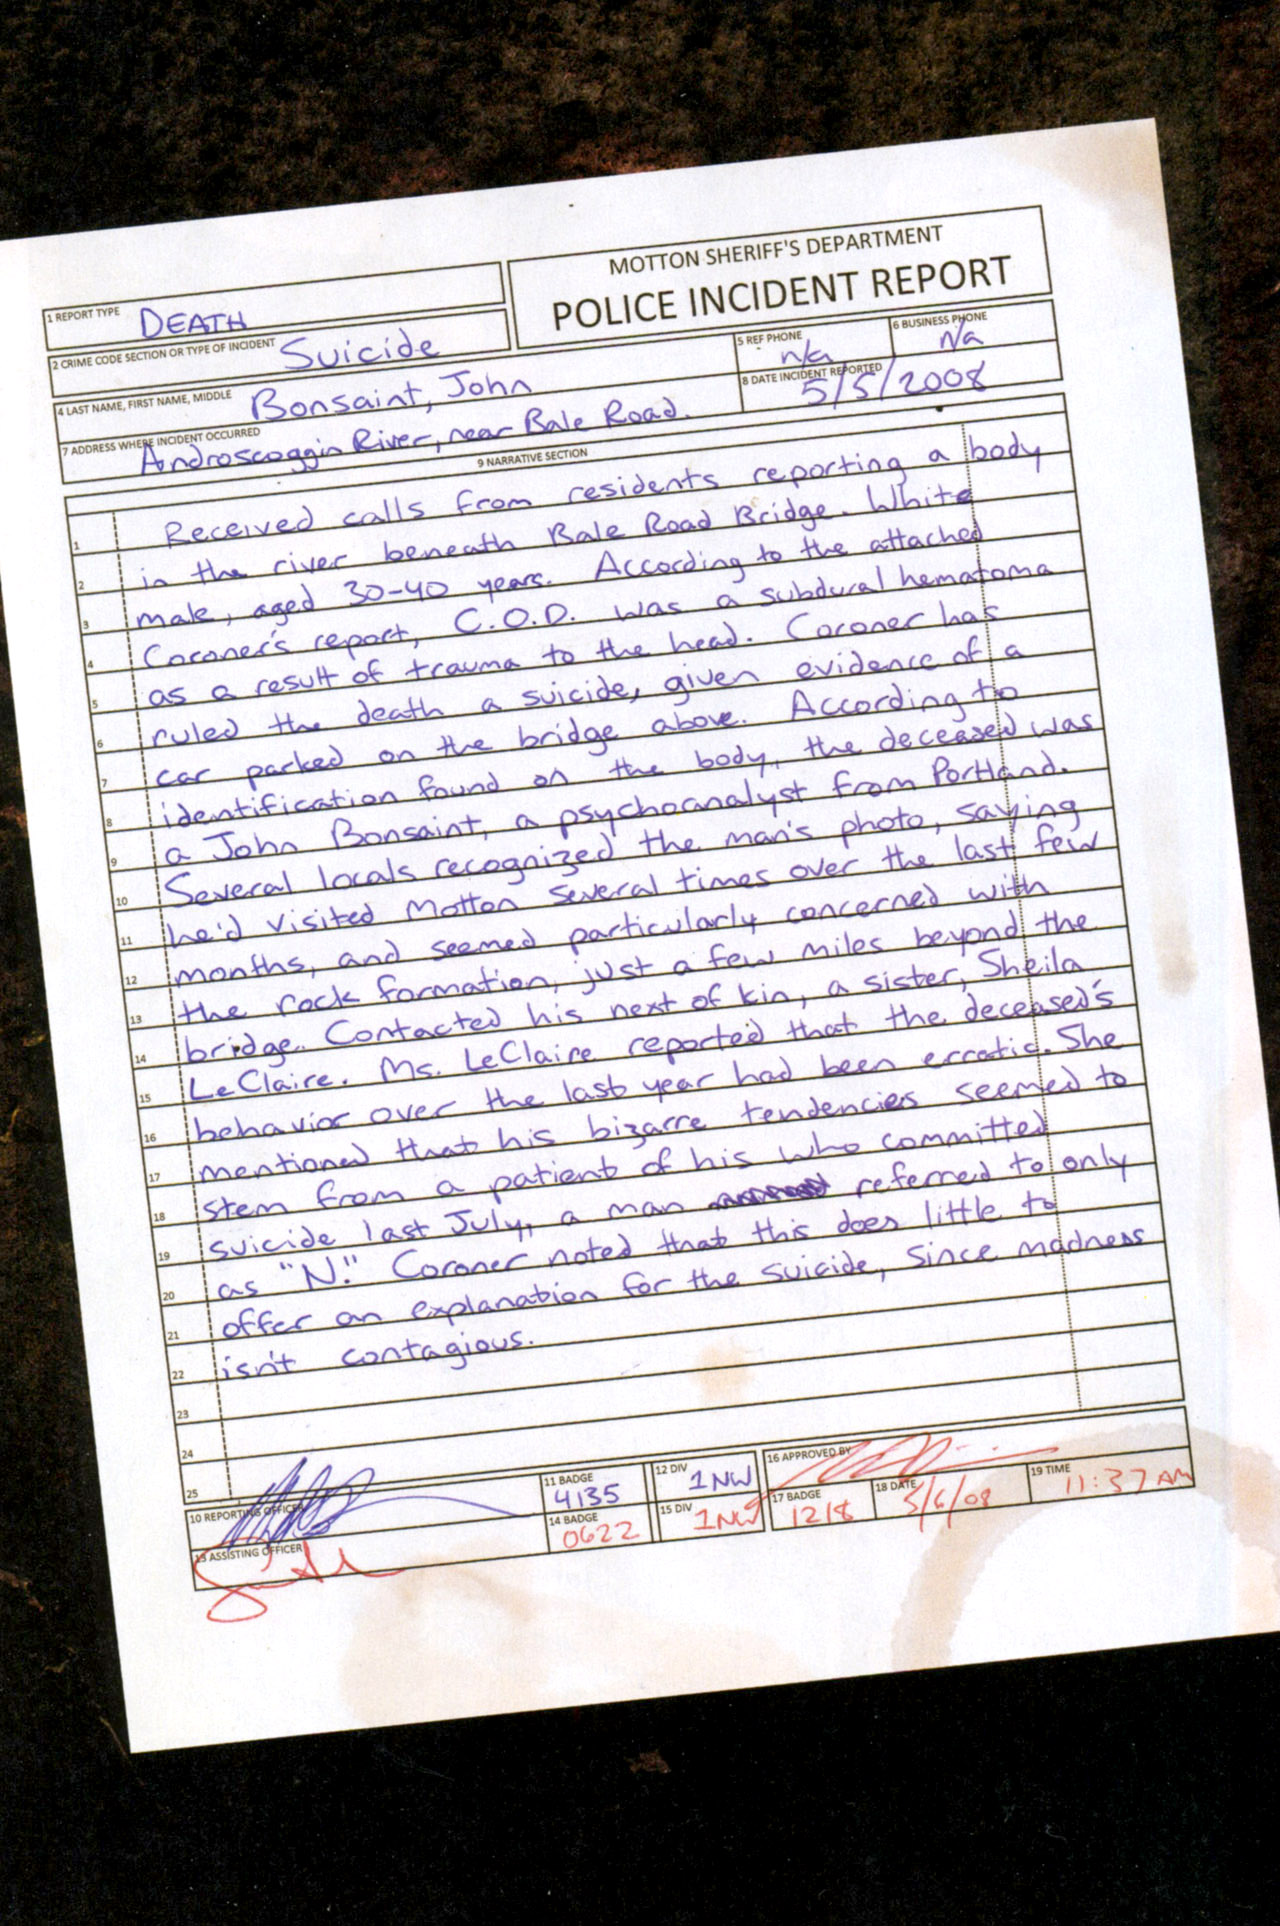 MOTTON SHERIFF'S DEPARTMENT
POLICE INCIDENT REPORT
1 REPORT TYPE DEATH
2 CRIME CODE SECTION OR TYPE OF INCIDENT Suicide
5 REF PHONE n/a
6 BUSINESS PHONE N/a
4 LAST NAME, FIRST NAME, MIDDLE Bonsaint, John
8 DATE INCIDENT REPORTED 5/5/2008
7 ADDRESS WHERE INCIDENT OCCURRED Androscoggin River, near Bale Road.
9 NARRATIVE SECTION
1 Received calls from residents reporting a body
2 in the river beneath Bale Road Bridge. White
3 male, aged 30-40 years. According to the attached
4 Coroner's report, C.O.D. was a subdural hematoma
5 as a result of trauma to the head. Coroner has
6 ruled the death a suicide, given evidence of a
7 car parked on the bridge above. According to
8 identification found on the body, the deceased was
9 a John Bonsaint, a psychoanalyst from Portland.
10 Several locals recognized the man's photo, saying
11 he'd visited Motton several times over the last few
12 months, and seemed particularly concerned with
13 the rock formation, just a few miles beyond the
14 bridge. Contacted his next of kin, a sister, Sheila
15 LeClaire. Ms. LeClaire reported that the deceased's
16 behavior over the last year had been erratic. She
17 mentioned that his bizarre tendencies seemed to
18 stem from a patient of his who committed
19 suicide last July, a man referred to only
20 as "N." Coroner noted that this does little to
21 offer an explanation for the suicide, since madness
22 isn't contagious.
23
24
25
10 REPORTING OFFICER
11 BADGE 4135
12 DIV 1NW
16 APPROVED BY
13 ASSISTING OFFICER
14 BADGE 0622
15 DIV 1NW
17 BADGE 1218
18 DATE 5/6/08
19 TIME 11:37 AM